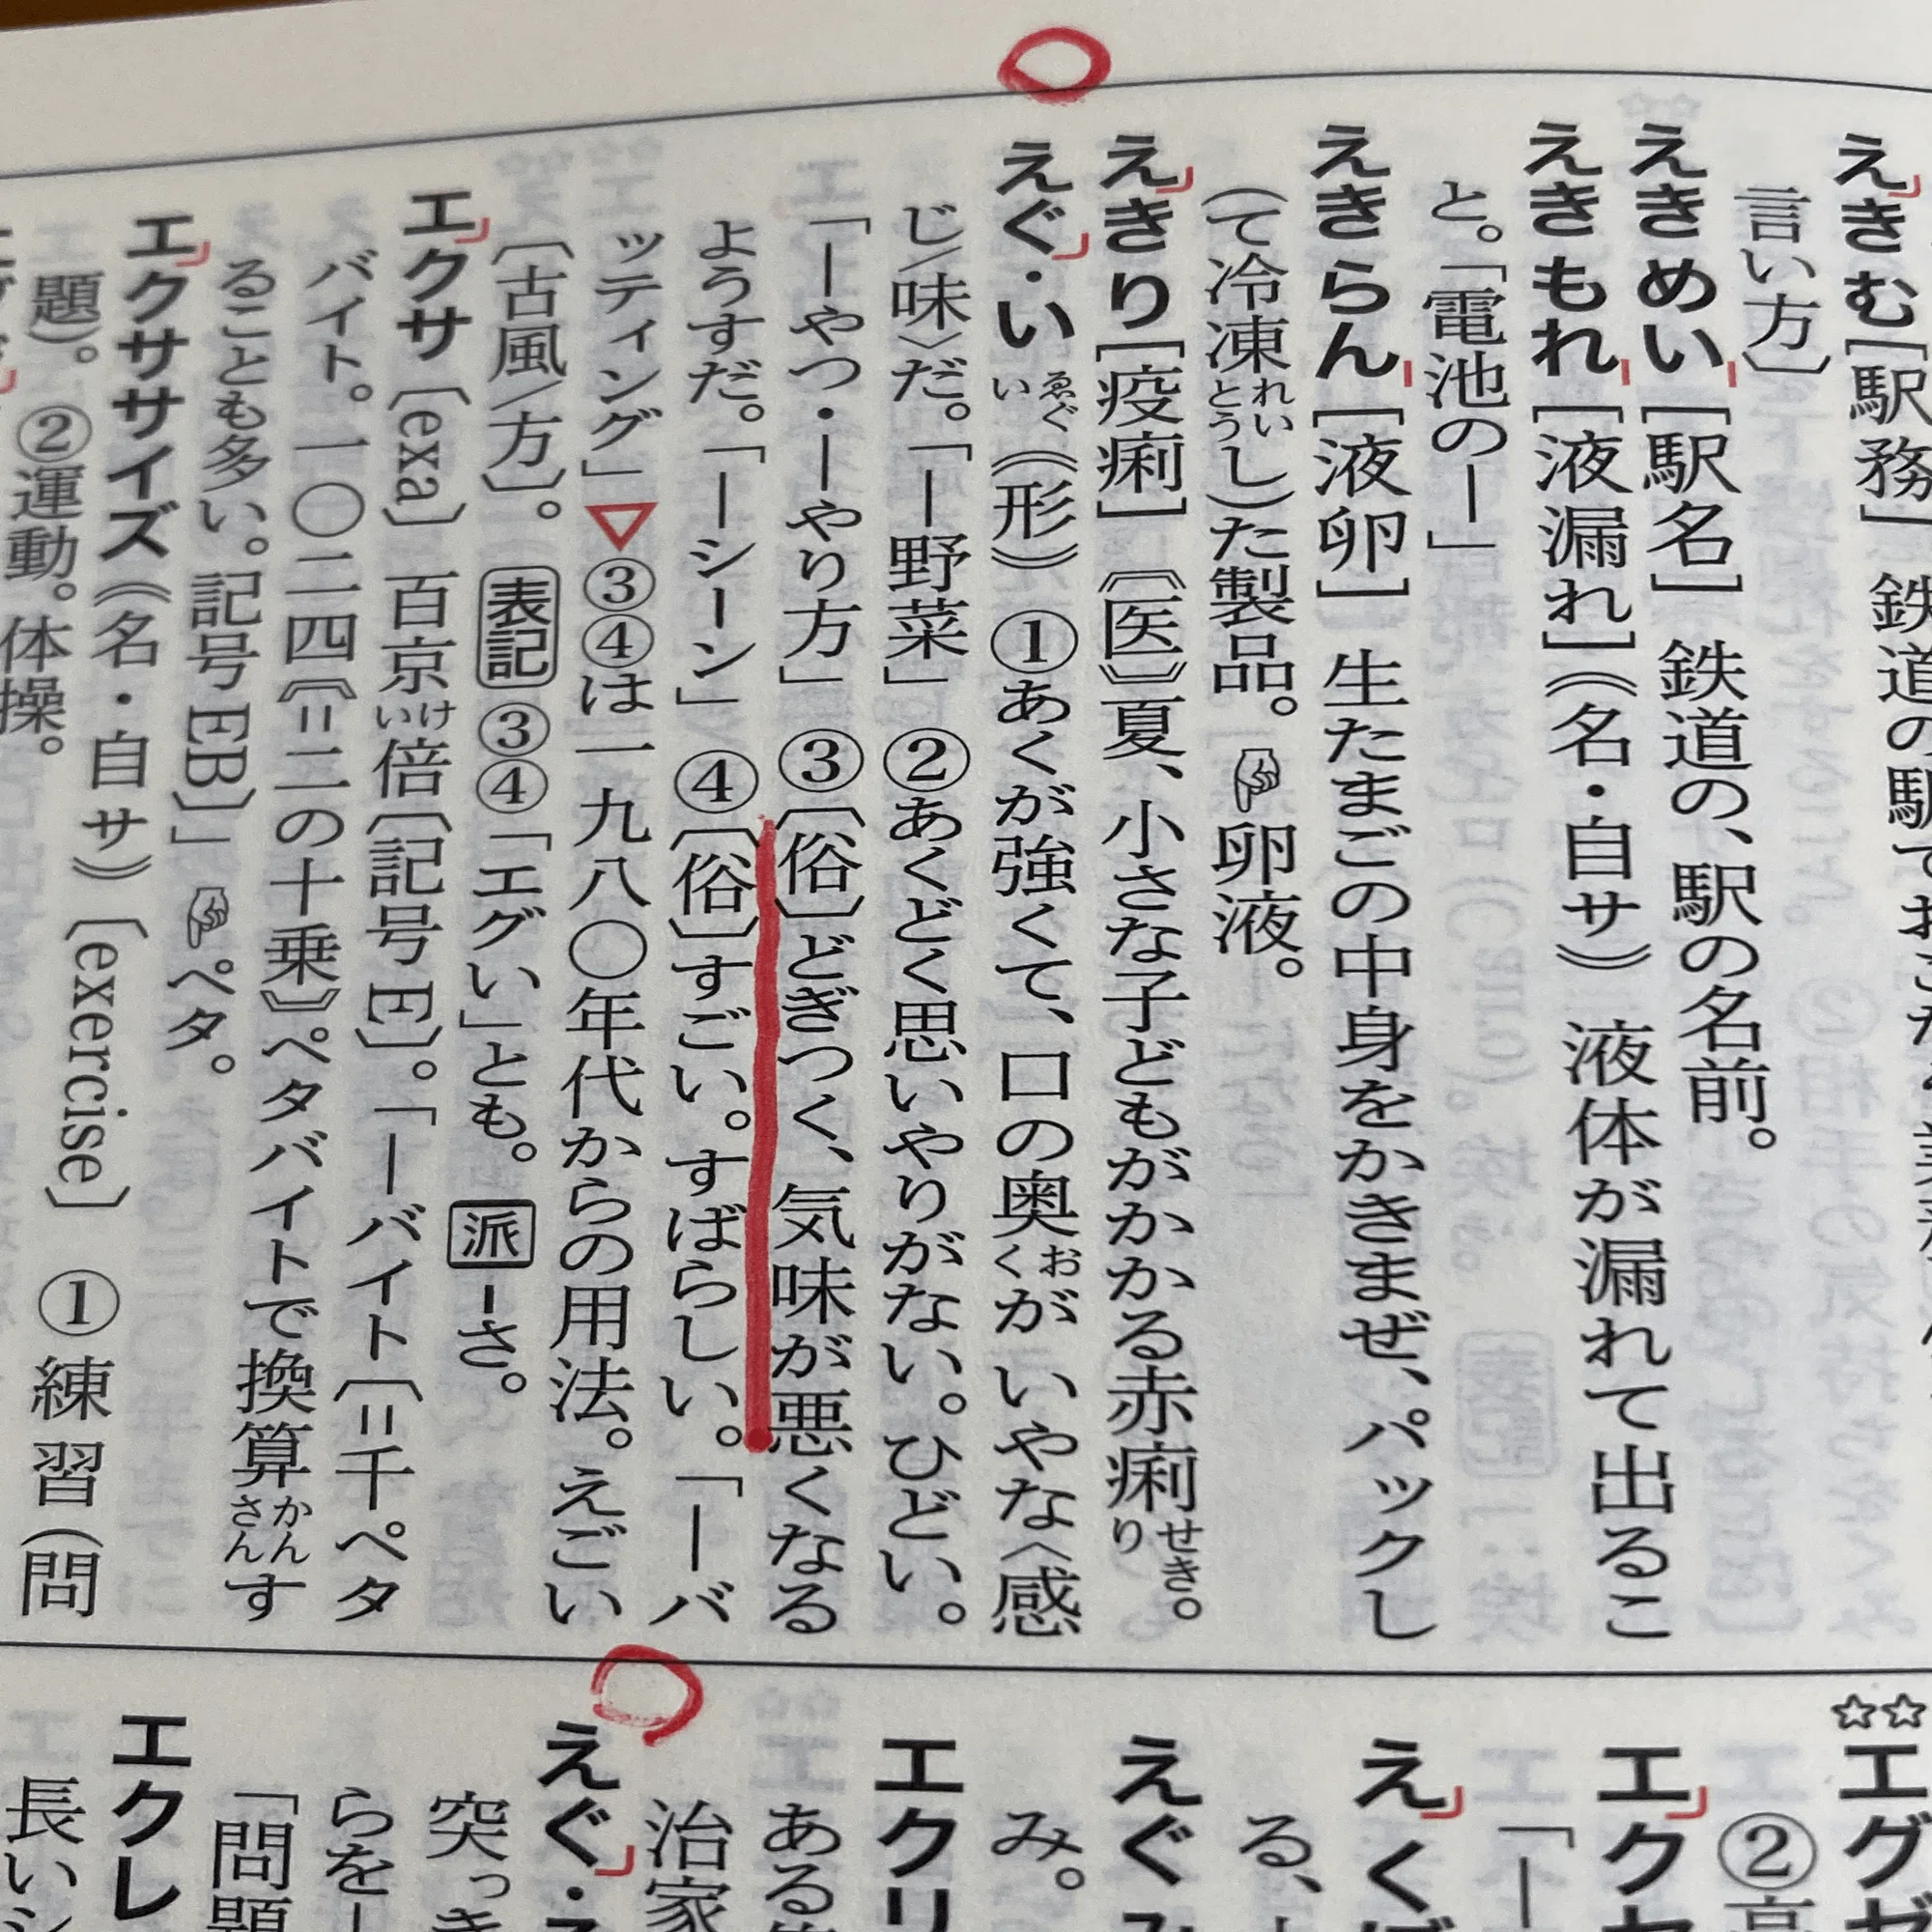 えきむ[駅務] 鉄道の駅
言い方〕
えきめい[駅名] 鉄道の、駅の名前。
えきもれ[液漏れ]《名・自サ》 液体が漏れて出るこ
と。「電池の―」
えきらん[液卵] 生たまごの中身をかきまぜ、パックし
(て冷凍れいとうし)た製品。☞卵液。
えきり[疫痢]〘医〙夏、小さな子どもがかかる赤痢せきり。
えぐ・いゑぐい《形》 ①あくが強くて、口の奥おくが いやな〈感
じ/味〉だ。「―野菜」 ②あくどく思いやりがない。ひどい。
「―やつ・―やり方」 ③〔俗〕どぎつく、気味が悪くなる
ようすだ。「―シーン」 ④〔俗〕すごい。すばらしい。「―バ
ッティング」▽③④は一九八〇年代からの用法。えごい
〔古風/方〕。 表記 ③④「エグい」とも。 派 -さ。
エクサ〔exa〕 百京けい倍〔記号E〕。「―バイト〔=千ペタ
バイト。一〇二四〘=二の十乗〙ペタバイトで換算かんさんす
ることも多い。記号EB〕」☞ペタ。
エクササイズ《名・自サ》〔exercise〕 ①練習(問
題)。 ②運動。体操。
☆☆エグゼ
②高
エクセ
「―
えくぼ
る、
えぐみ
み。
エクリ
ある
治家
えぐ・
突っき
らを―
「問題
エクレ
長いシ